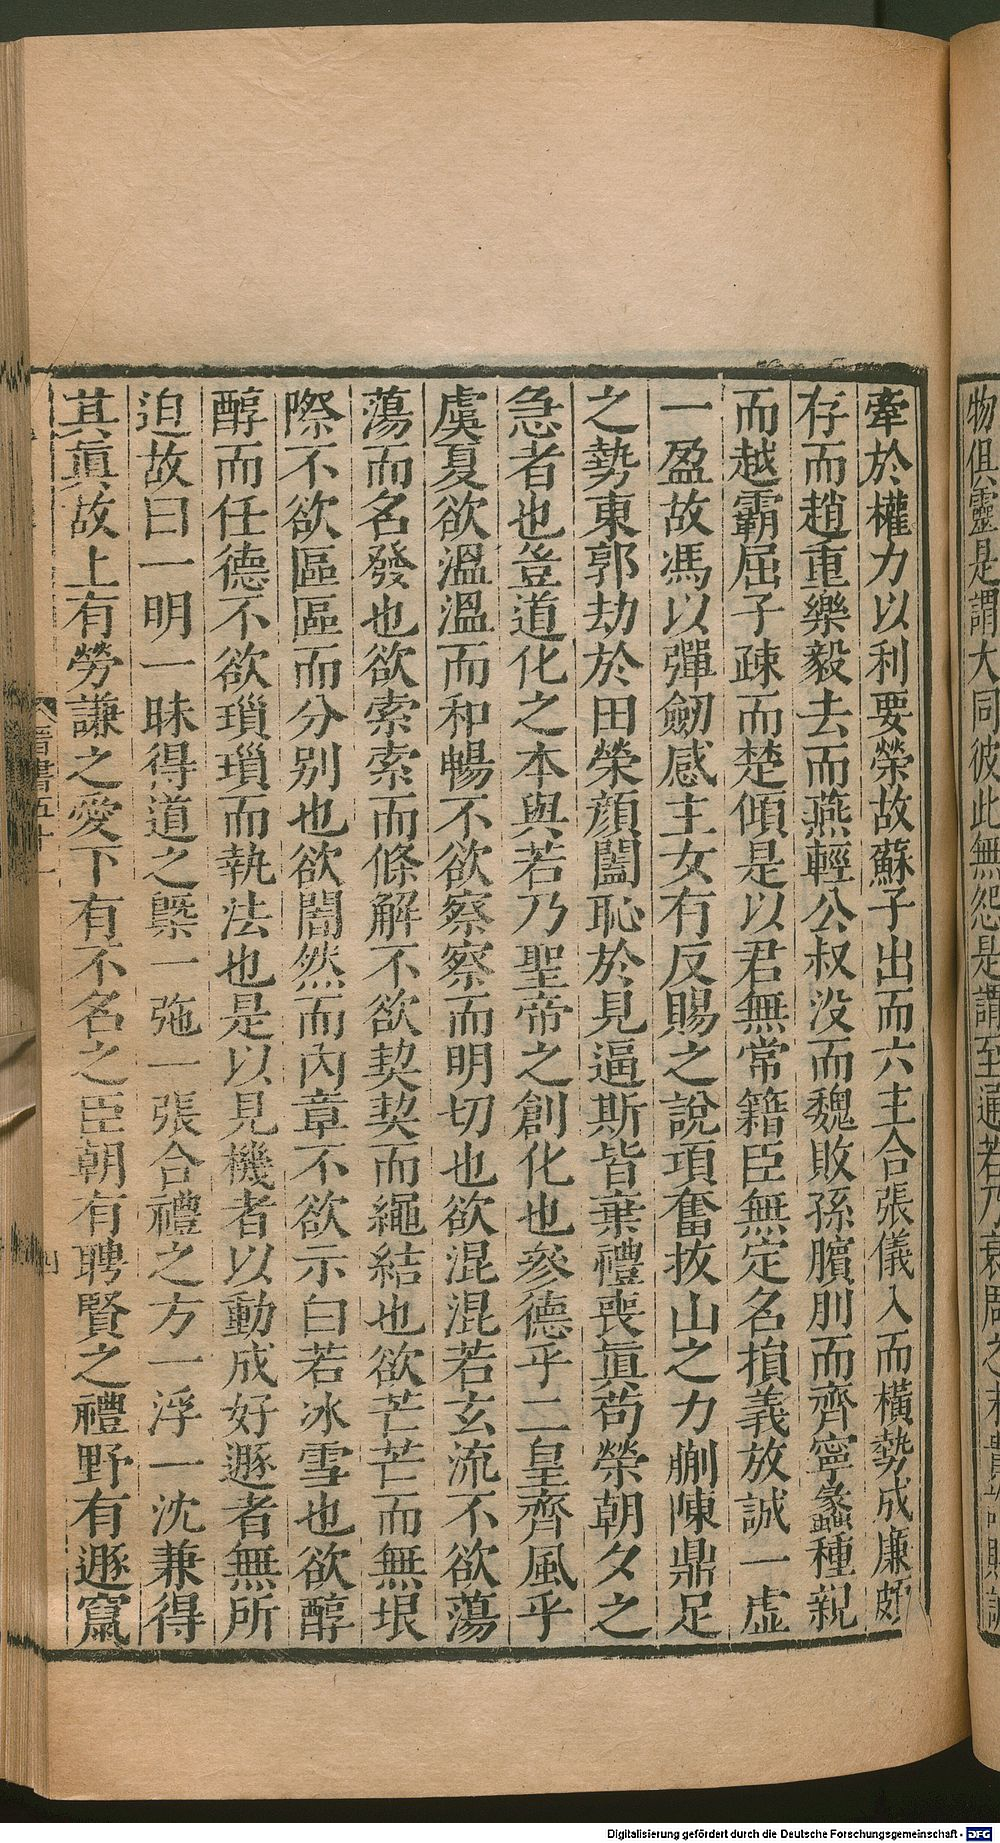 物俱靈是謂大同彼此無怨是謂至通若乃衰周之末貴詐賤誠
牽於權力以利要榮故蘇子出而六主合張儀入而橫勢成廉頗
存而趙重樂毅去而燕輕公叔没而魏敗孫臏刖而齊寧蠡種親
而越霸屈子疎而楚傾是以君無常籍臣無定名損義放誠一虛
一盈故馮以彈劒感主女有反賜之說項奮拔山之力蒯陳鼎足
之勢東郭劫於田榮顏闔恥於見逼斯皆棄禮喪眞苟榮朝夕之
急者也豈道化之本與若乃聖帝之創化也參德乎二皇齊風乎
虞夏欲溫溫而和暢不欲察察而明切也欲混混若玄流不欲蕩
蕩而名發也欲索索而條解不欲契契而繩結也欲芒芒而無垠
際不欲區區而分别也欲闇然而內章不欲示白若冰雪也欲醇
醇而任德不欲瑣瑣而執法也是以見機者以動成好遯者無所
迫故曰一明一昧得道之槩一弛一張合禮之方一浮一沈兼得
其眞故上有勞謙之愛下有不名之臣朝有聘賢之禮野有遯竄
晉書五十一
四
Digitalisierung gefördert durch die Deutsche Forschungsgemeinschaft - DFG